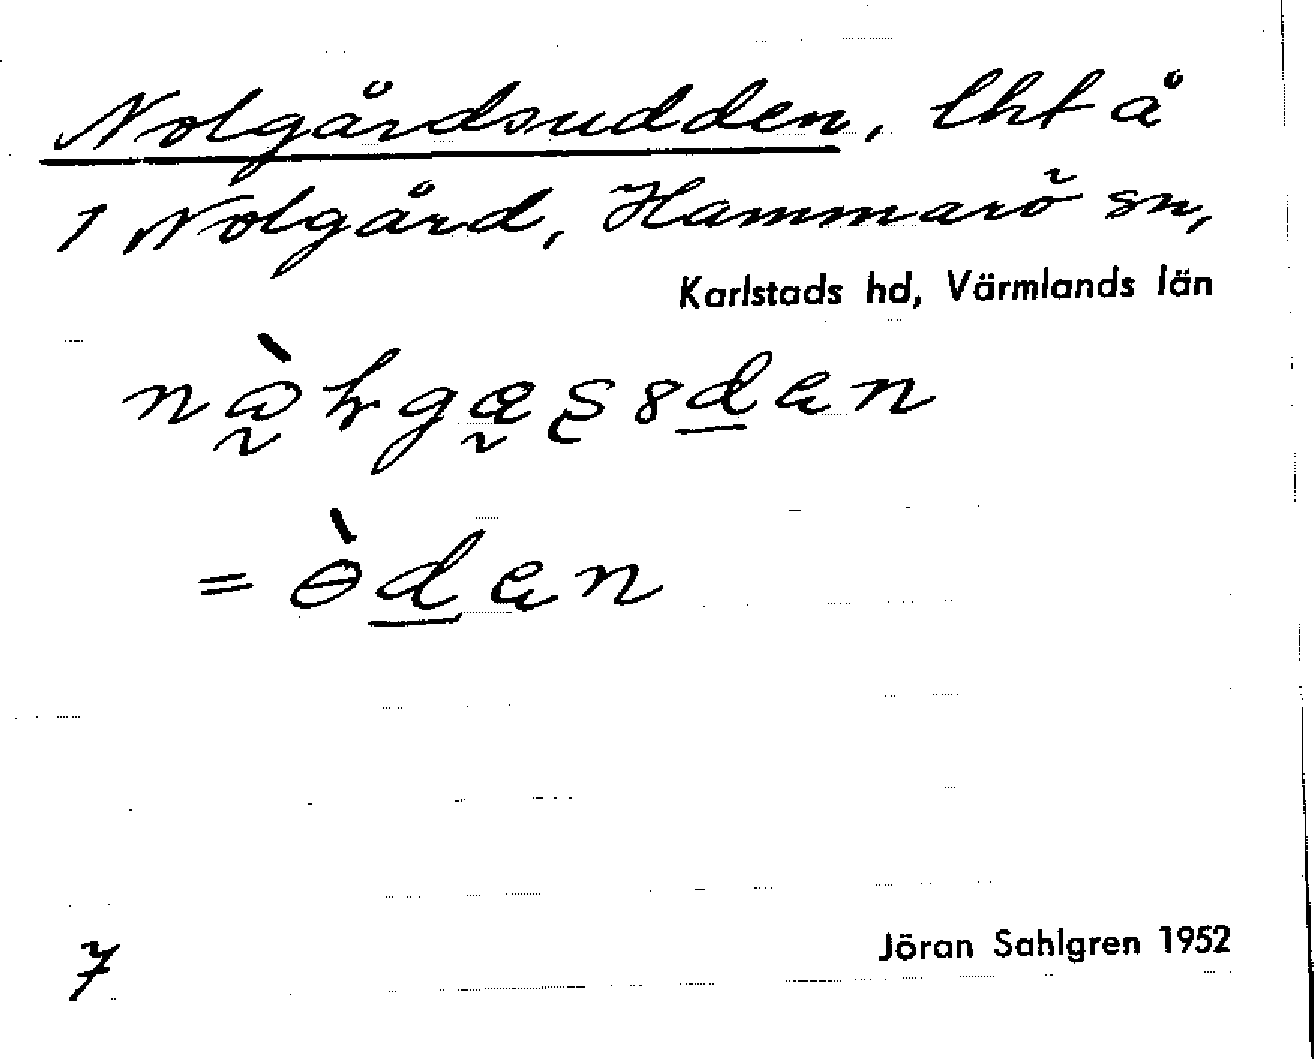 Nolgårdsudden, lht å
1 Nolgård, Hammarö sn,
Karlstads hd, Värmlands län
7
Jöran Sahlgren 1952